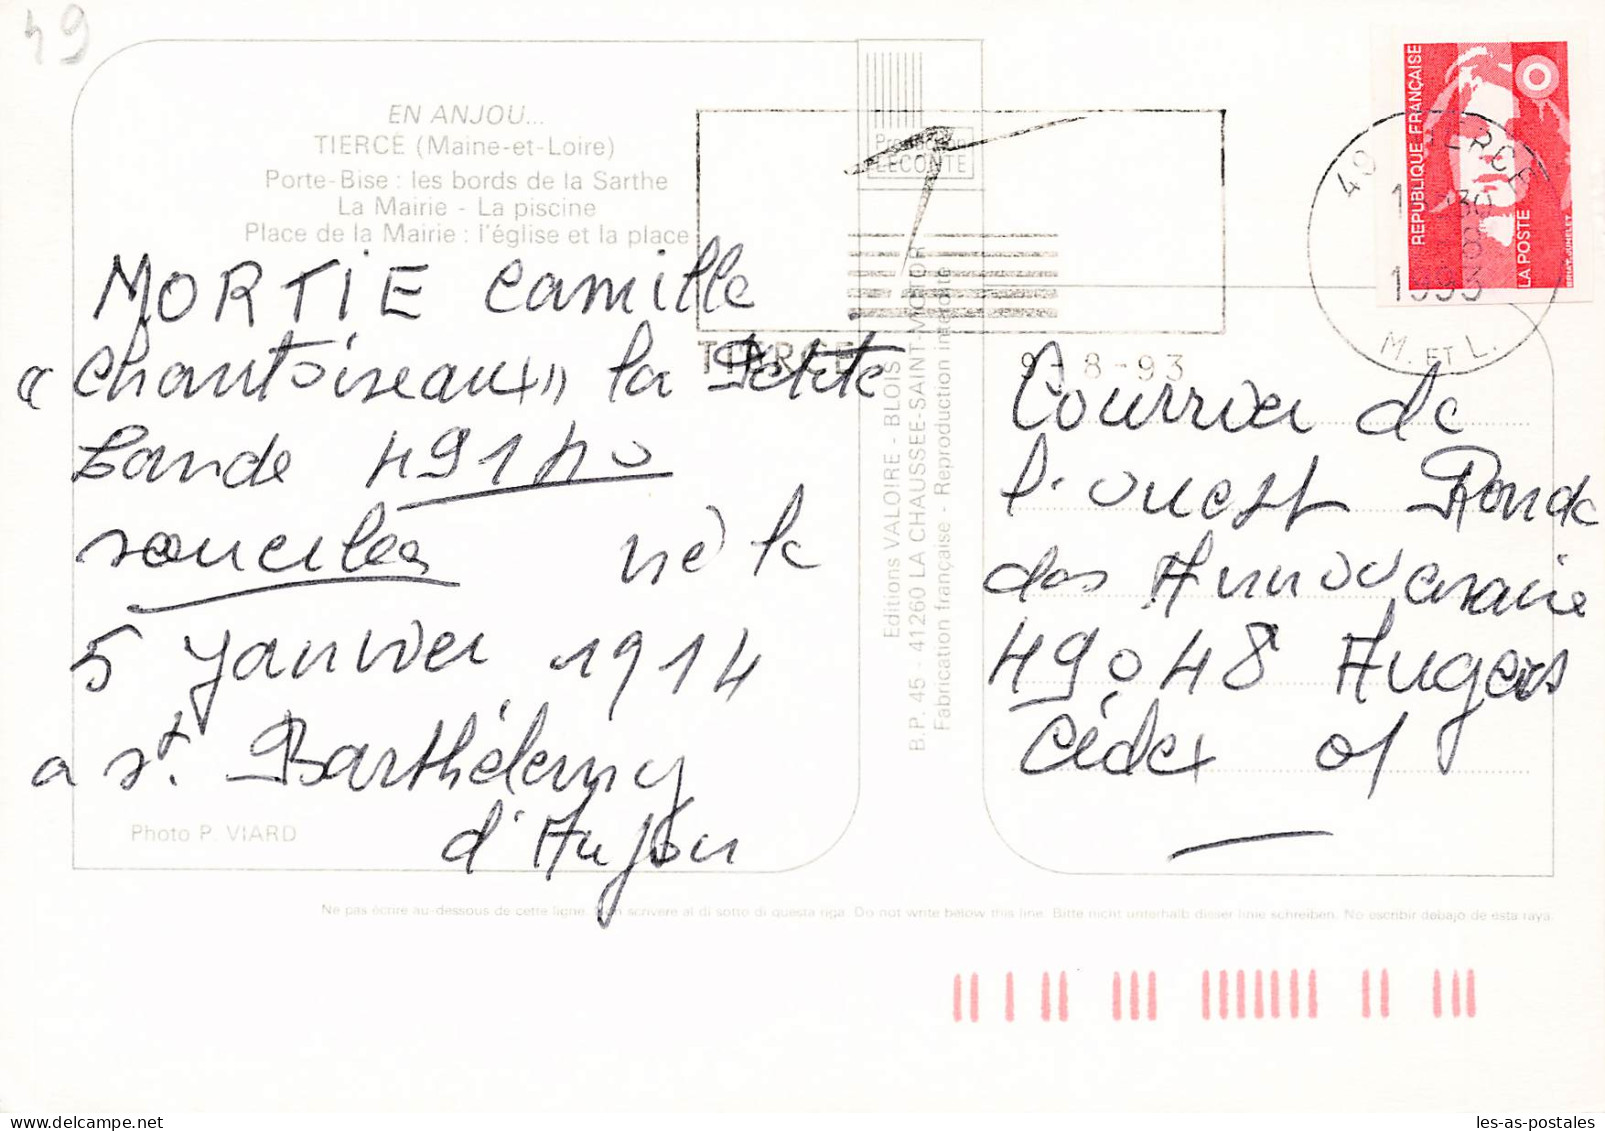 49
EN ANJOU...
TIERCÉ (Maine-et-Loire)
Porte-Bise : les bords de la Sarthe
La Mairie - La piscine
Place de la Mairie : l'église et la place
MORTIE Camille
« Chantoiseau » la Petite
Lande 49140
soucelles né le
5 Janvier 1914
a st. Barthélemy
d'Anjou
Photo P. VIARD
LECONTE
TIERCE
9-8-93
Editions VALOIRE - BLOIS
B.P. 45 - 41260 LA CHAUSSEE-SAINT-VICTOR
Fabrication française - Reproduction interdite
REPUBLIQUE FRANÇAISE
LA POSTE
49 TIERCE
1993
M. ET L.
Courrier de
l'ouest Ronde
des Anniversaire
49048 Angers
Cédex 01
Ne pas écrire au-dessous de cette ligne. Non scrivere al di sotto di questa riga. Do not write below this line. Bitte nicht unterhalb dieser linie schreiben. No escribir debajo de esta raya.
les-as-postales